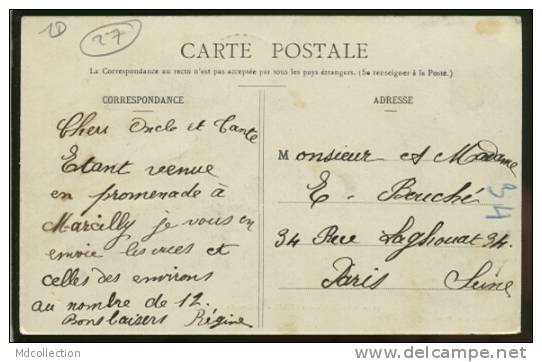 1D
27
CARTE POSTALE
La Correspondance au recto n'est pas acceptée par tous les pays étrangers. (Se renseigner à la Poste.)
CORRESPONDANCE
Chers Oncle et Tante
Etant venue
en promenade à
Marcilly je vous en
envoie les vues et
celles des environs
au nombre de 12.
Bons baisers Régine
ADRESSE
Monsieur et Madame
E. Bouché
34 Rue Laghouat 34.
Paris Seine
34
MDcollection
www.delcampe.net